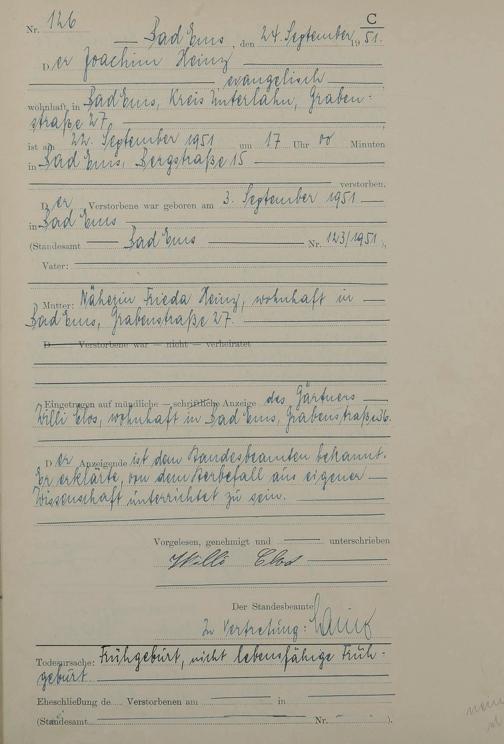 C
Nr. 126
Bad Ems, den 24. September 1951.
Der Joachim Heinz
evangelisch
wohnhaft in Bad Ems, Kreis Unterlahn, Graben-
straße 27
ist am 22. September 1951 um 17 Uhr 00 Minuten
in Bad Ems, Bergstraße 15
verstorben.
Der Verstorbene war geboren am 3. September 1951
in Bad Ems
(Standesamt Bad Ems Nr. 123/1951).
Vater:
Mutter: Näherin Frieda Heinz, wohnhaft in
Bad Ems, Grabenstraße 27.
D Verstorbene war — nicht — verheiratet
Eingetragen auf mündliche — schriftliche Anzeige des Gärtners
Willi Clos, wohnhaft in Bad Ems, Grabenstraße 26.
Der Anzeigende ist dem Standesbeamten bekannt.
Er erklärte, von dem Sterbefall aus eigener
Wissenschaft unterrichtet zu sein.
Vorgelesen, genehmigt und unterschrieben
Willi Clos
Der Standesbeamte
In Vertretung:
Todesursache: Frühgeburt, nicht lebensfähige Früh-
geburt.
Eheschließung de Verstorbenen am in
(Standesamt Nr. ).